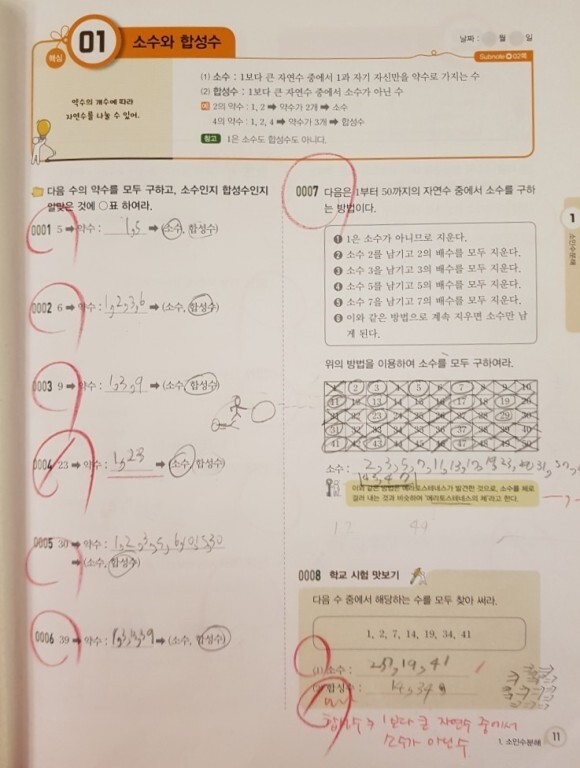 핵심
01 소수와 합성수
날짜 : 월 일
Subnote 02쪽
약수의 개수에 따라
자연수를 나눌 수 있어.
(1) 소수 : 1보다 큰 자연수 중에서 1과 자기 자신만을 약수로 가지는 수
(2) 합성수 : 1보다 큰 자연수 중에서 소수가 아닌 수
예 2의 약수 : 1, 2 ➡ 약수가 2개 ➡ 소수
4의 약수 : 1, 2, 4 ➡ 약수가 3개 ➡ 합성수
참고 1은 소수도 합성수도 아니다.
다음 수의 약수를 모두 구하고, 소수인지 합성수인지
알맞은 것에 ○표 하여라.
0001 5 ➡ 약수 : 1, 5 ➡ (소수, 합성수)
0002 6 ➡ 약수 : 1, 2, 3, 6 ➡ (소수, 합성수)
0003 9 ➡ 약수 : 1, 3, 9 ➡ (소수, 합성수)
0004 23 ➡ 약수 : 1, 23 ➡ (소수, 합성수)
0005 30 ➡ 약수 : 1, 2, 3, 5, 6,
➡ (소수, 합성수)
0006 39 ➡ 약수 : ➡ (소수, 합성수)
0007 다음은 1부터 50까지의 자연수 중에서 소수를 구하
는 방법이다.
❶ 1은 소수가 아니므로 지운다.
❷ 소수 2를 남기고 2의 배수를 모두 지운다.
❸ 소수 3을 남기고 3의 배수를 모두 지운다.
❹ 소수 5를 남기고 5의 배수를 모두 지운다.
❺ 소수 7을 남기고 7의 배수를 모두 지운다.
❻ 이와 같은 방법으로 계속 지우면 소수만 남
게 된다.
위의 방법을 이용하여 소수를 모두 구하여라.
2 3 5 7 9 10
11 13 17 19
23 29
31 37
41 43 47
소수 : 2, 3, 5, 7, 11, 13, 17, 23, 31, 37,
이와 같은 방법은 에라토스테네스가 발견한 것으로, 소수를 체로
걸러 내는 것과 비슷하여 '에라토스테네스의 체'라고 한다.
12 44
0008 학교 시험 맛보기
다음 수 중에서 해당하는 수를 모두 찾아 써라.
1, 2, 7, 14, 19, 34, 41
(1) 소수 : 19, 41
(2) 합성수 : 14, 34
합성수 : 1보다 큰 자연수 중에서
소수가 아닌수
1
소인수분해
1. 소인수분해 11